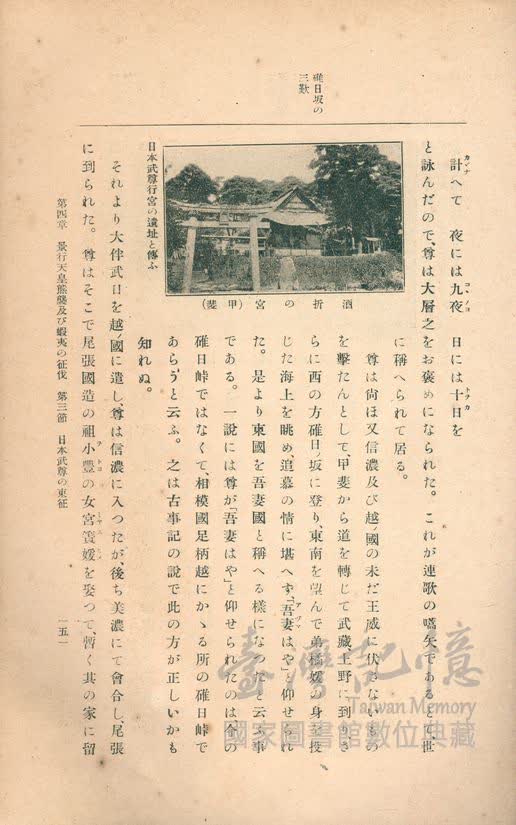 碓日坂の
三歎
計へて　夜には九夜　日には十日を
カヾナ
コヽノヨ
トヲカ
と詠んだので、尊は大層之をお褒めになられた。これが連歌の嚆矢であるとて、世
に稱へられて居る。
尊は尙ほ又信濃及び越ノ國の未だ王威に伏さないもの
を擊たんとして、甲斐から道を轉じて武藏上野に到り、さ
らに西の方碓日ノ坂に登り、東南を望んで弟橘媛の身を投
じた海上を眺め、追慕の情に堪へず、「吾妻はや」と仰せられ
アヅマ
た。是より東國を吾妻國と稱へる樣になつたと云ふ事
である。一說には尊が「吾妻はや」と仰せられたのは今の
碓日峠ではなくて、相模國足柄越にかゝる所の碓日峠で
あらうと云ふ。之は古事記の說で此の方が正しいかも
知れぬ。
酒折の宮（甲斐）
日本武尊行宮の遺址と傳ふ
それより大伴武日を越ノ國に遣し、尊は信濃に入つたが、後ち美濃にて會合し、尾張
に到られた。尊はそこで尾張國造の祖小豐の女宮簀媛を娶つて、暫く其の家に留
ヲトヨ
ミヤスヒメ
第四章　景行天皇熊襲及び蝦夷の征伐　第三節　日本武尊の東征
一五一
臺灣記憶
Taiwan Memory
國家圖書館數位典藏